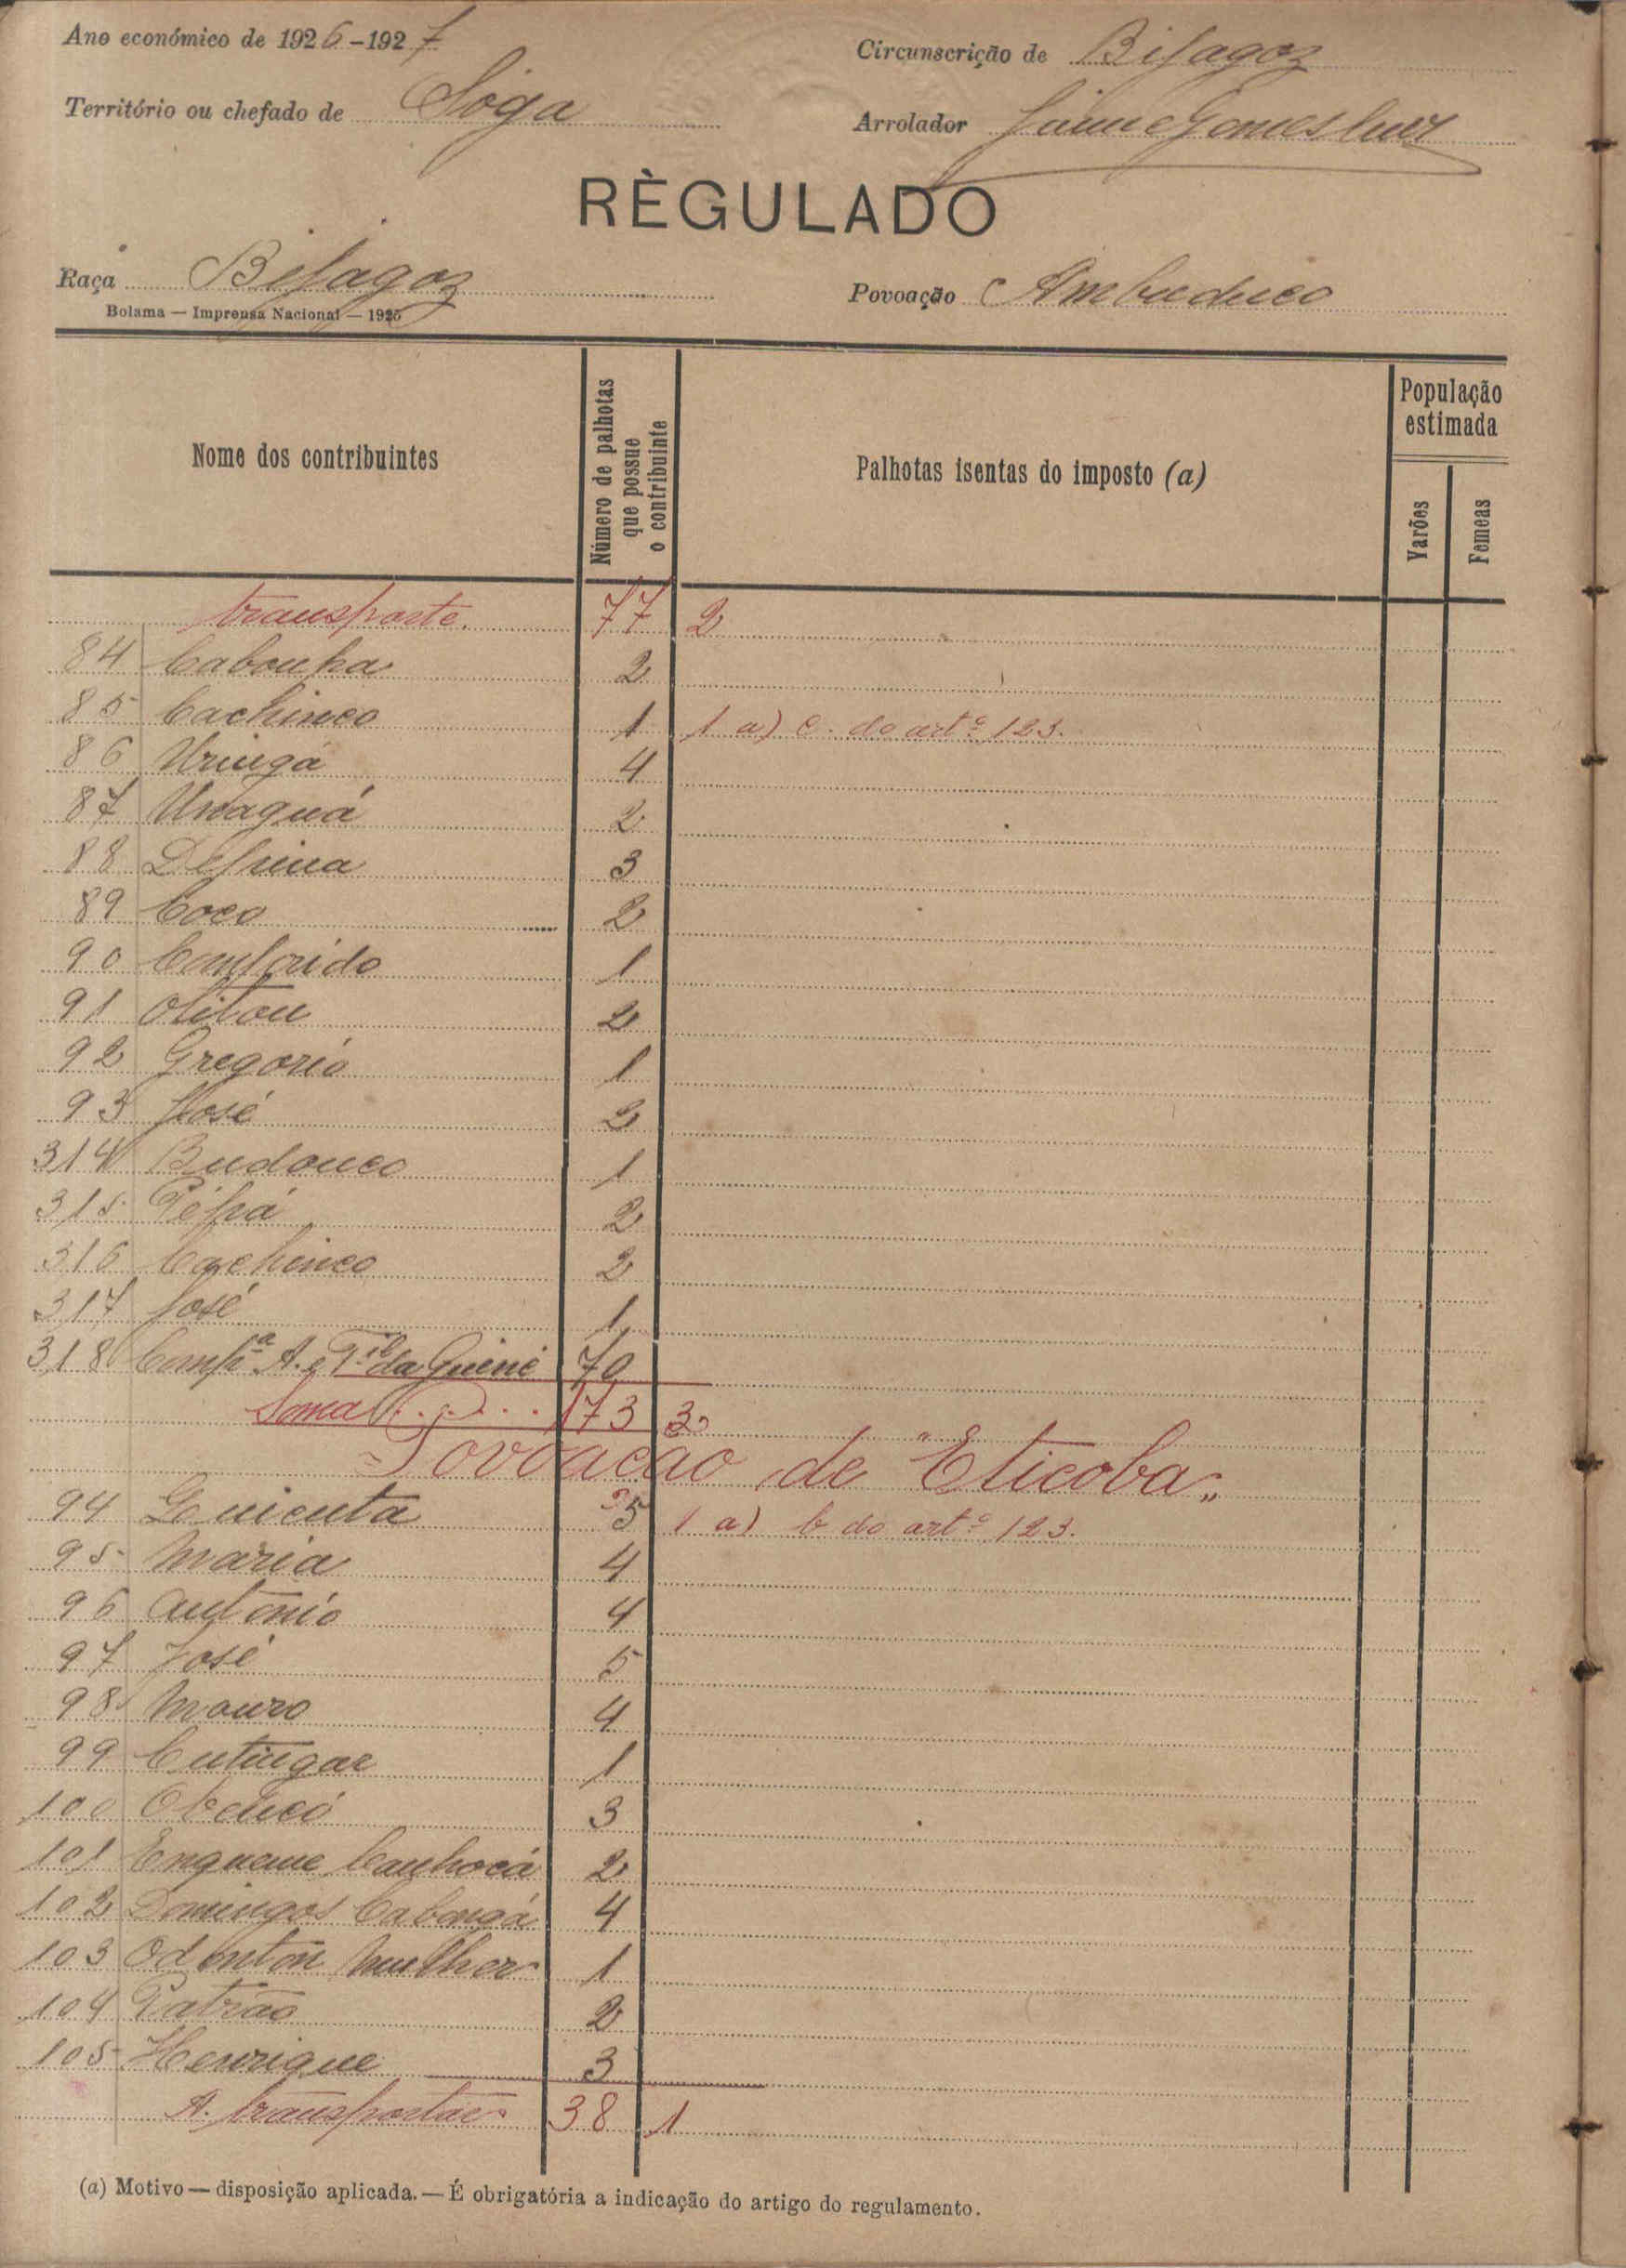 Ano económico de 1926-1927
Circunscrição de Bijagoz
Território ou chefado de Soga
Arrolador Jaime Gomes
RÈGULADO
Raça Bijagoz
Povoação Ambuduco
Bolama — Imprensa Nacional — 1925
Nome dos contribuintes
Número de palhotas que possue o contribuinte
Palhotas isentas do imposto (a)
População estimada
Varões
Femeas
transporte. 77 2
84 Cabonha 2
85 Cachinco 1 1 a) c. do artº 123.
86 Uringá 4
87 Unaguá 2
88 3
89 Coco 2
90 1
91 2
92 Gregorio 1
93 José 2
314 Budouco 1
315 Pépá 2
316 Cachinco 2
317 José 1
318 Compª A. e da Guiné 70
Soma 173 3
Povoação de "Eticoba"
94 Guicuta 5 1 a) b do artº 123.
95 Maria 4
96 Antonio 4
97 José 5
98 Mouro 4
99 Cutingar 1
100 3
101 Canhocá 2
102 Domingos Cabongá 4
103 Odonton Mulher 1
104 Patrão 2
105 Henrique 3
A transportar 38 1
(a) Motivo — disposição aplicada. — É obrigatória a indicação do artigo do regulamento.